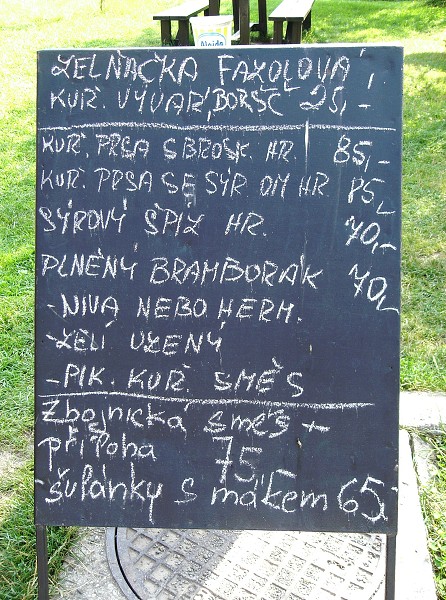 ZELŇAČKA FAZOLOVÁ,
KUŘ. VÝVAR, BORŠČ 25,-
KUŘ. PRSA S BROSK. HR. 85,-
KUŘ. PRSA SE SÝR. OM HR 85,-
SÝROVÝ ŠPÍZ HR. 70,-
PLNĚNÝ BRAMBORÁK 70,-
-NIVA NEBO HERM.
-ZELÍ UZENÝ
-PIK. KUŘ. SMĚS
Zbojnická směs +
příloha 75,-
-šulánky s mákem 65,-